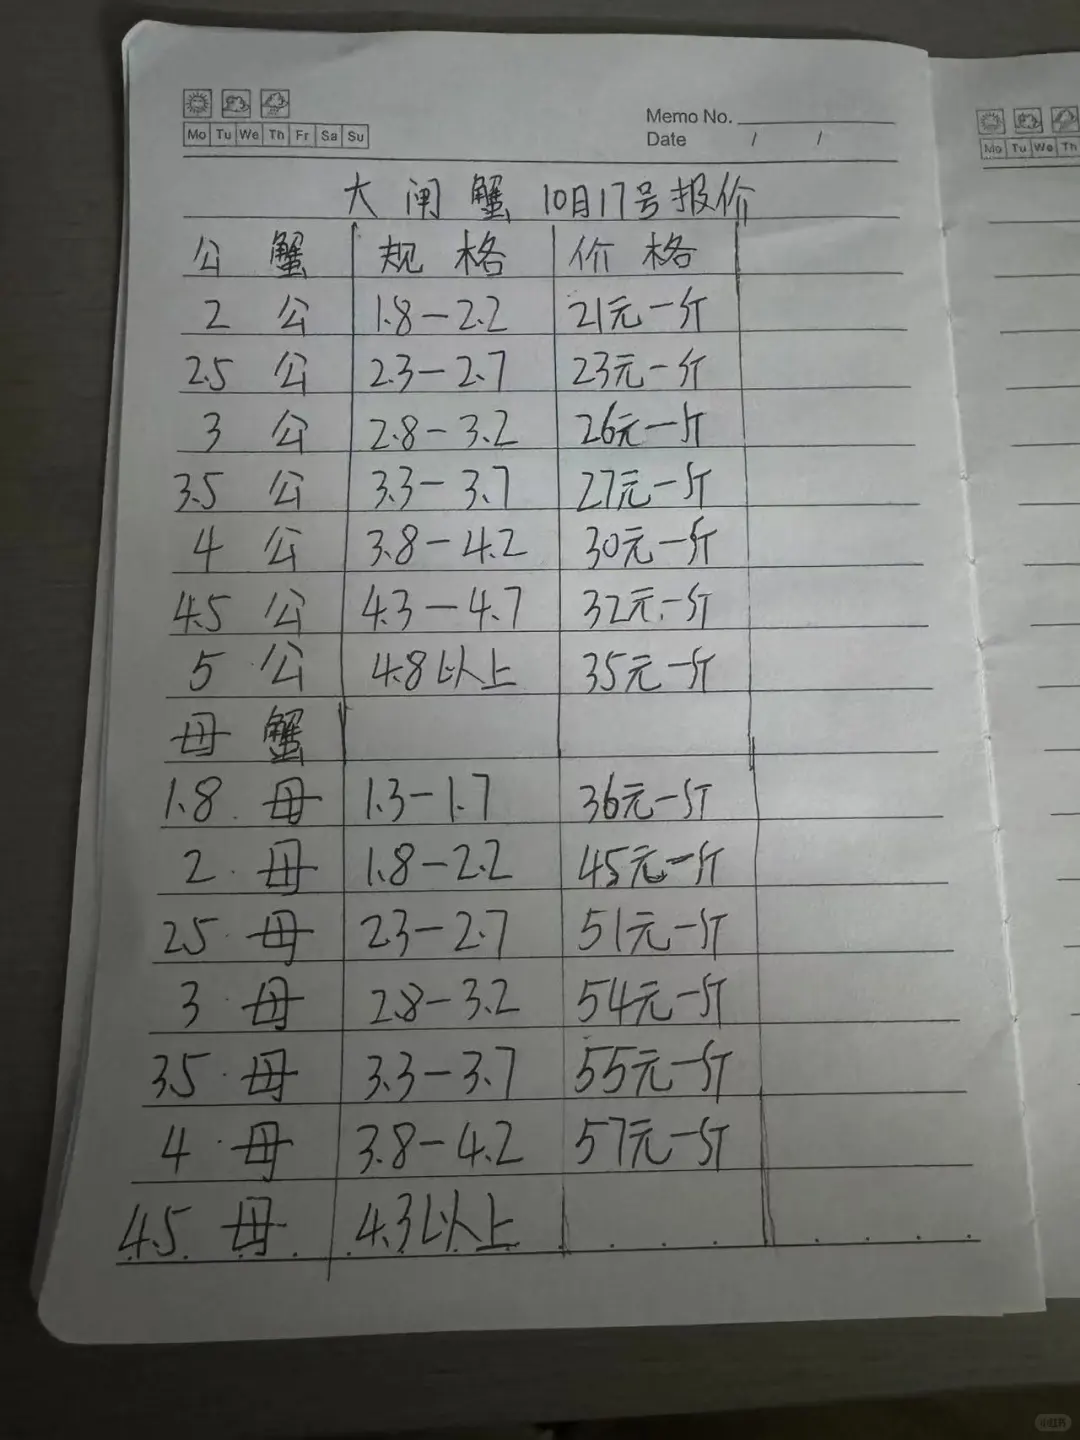 Mo Tu We Th Fr Sa Su
Memo No.
Date / /
大闸蟹 10月17号报价
公蟹 规格 价格
2公 1.8-2.2 21元一斤
2.5公 2.3-2.7 23元一斤
3公 2.8-3.2 26元一斤
3.5公 3.3-3.7 27元一斤
4公 3.8-4.2 30元一斤
4.5公 4.3-4.7 32元一斤
5公 4.8以上 35元一斤
母蟹
1.8母 1.3-1.7 36元一斤
2母 1.8-2.2 45元一斤
2.5母 2.3-2.7 51元一斤
3母 2.8-3.2 54元一斤
3.5母 3.3-3.7 55元一斤
4母 3.8-4.2 57元一斤
4.5母 4.3以上
Mo Tu We Th
小红书